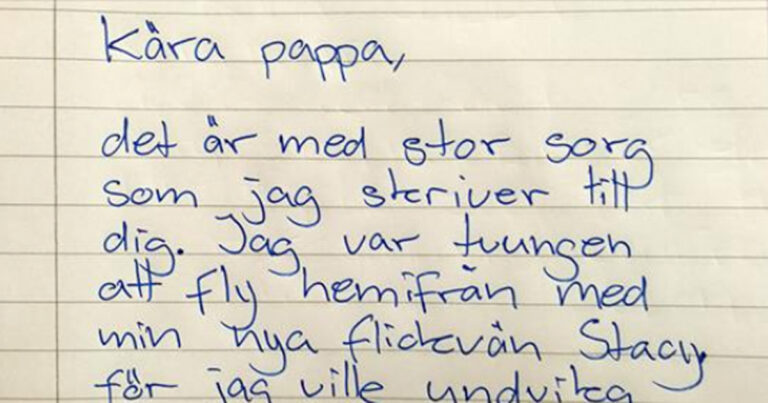 Kära pappa,
det är med stor sorg
som jag skriver till
dig. Jag var tvungen
att fly hemifrån med
min nya flickvän Stacy
för jag ville undvika